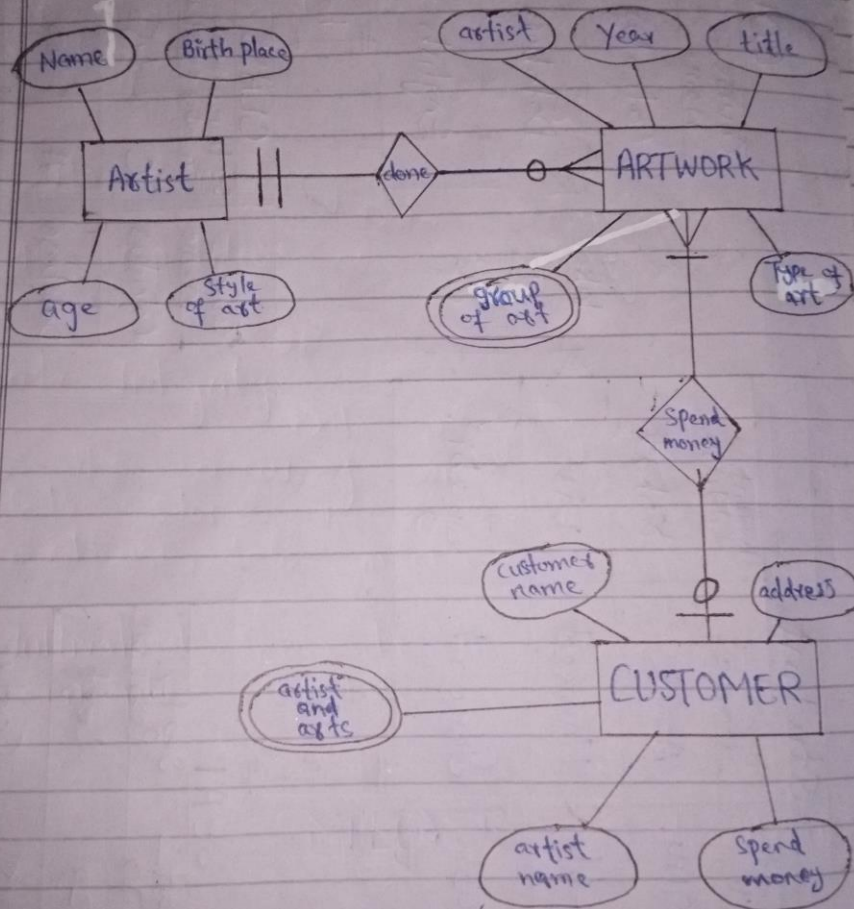 Name
Birth place
artist
Year
title
Artist
done
ARTWORK
age
Style
of art
group
of art
Type of
art
Spend
money
customer
name
address
CUSTOMER
artist
and
arts
artist
name
Spend
money